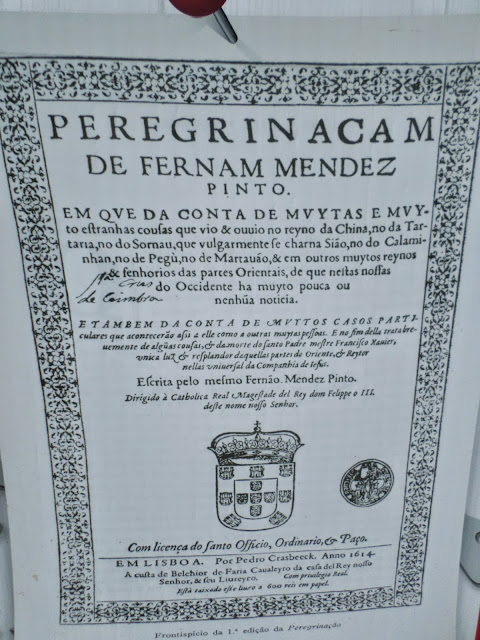 PEREGRINACAM
DE FERNAM MENDEZ
PINTO.
EM QVE DA CONTA DE MVYTAS E MVY-
to estranhas cousas que vio & ouuio no reyno da China, no da Tar-
taria, no do Sornau, que vulgarmente se chama Sião, no do Calami-
nhan, no de Pegù, no de Martauão, & em outros muytos reynos
& senhorios das partes Orientais, de que nestas nossas
do Occidente ha muyto pouca ou
nenhũa noticia.
de Coimbra
E TAMBEM DA CONTA DE MVYTOS CASOS PARTI-
culares que acontecerão assi a elle como a outras muytas pessoas. E no fim della trata bre-
uemente de algũas cousas, & da morte do santo Padre mestre Francisco Xauier,
vnica luz & resplandor daquellas partes do Oriente, & Reytor
nellas vniuersal da Companhia de Iesus.
Escrita pelo mesmo Fernão Mendez Pinto.
Dirigido à Catholica Real Magestade del Rey dom Felippe o III.
deste nome nosso Senhor.
Com licença do santo Officio, Ordinario, & Paço.
EM LISBOA. Por Pedro Crasbeeck. Anno 1614.
A custa de Belchior de Faria Caualeyro da casa del Rey nosso
Senhor, & seu Liureyro. Com priuilegio Real.
Està taixado este liuro a 600 reis em papel.
Frontispício da 1.ª edição da Peregrinação